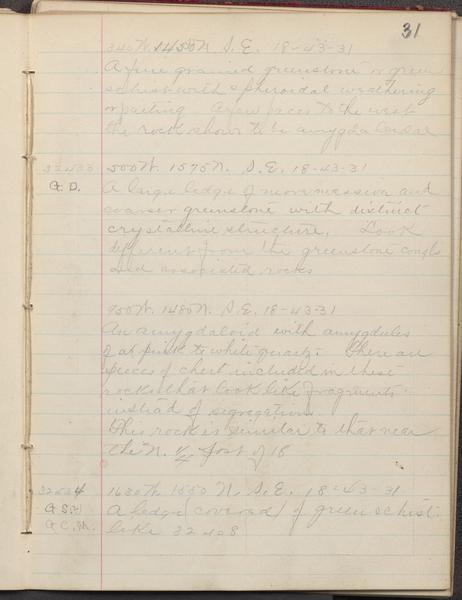 31
340 W. 1450 N. S.E. 18-43-31
A fine grained greenstone or green
schist with spheroidal weathering
or parting A few paces to the west
the rock shows to be amygdaloidal
500 W. 1575 N. S.E. 18-43-31
G.D. A large ledge of more massive and
coarser greenstone with distinct
crystalline structure, Look
different from the greenstone congls
and associated rocks
950 W. 1480 N. S.E. 18-43-31
An amygdaloid with amygdules
of pink to white quartz. There are
pieces of chert included in these
rocks that look like fragments
instead of segregations
This rock is similar to that near
the N. 1/4 post of 18
1630 W. 1550 N. S.E. 18-43-31
G.S. A ledge (covered) of green schist
G.C.M. like 32408